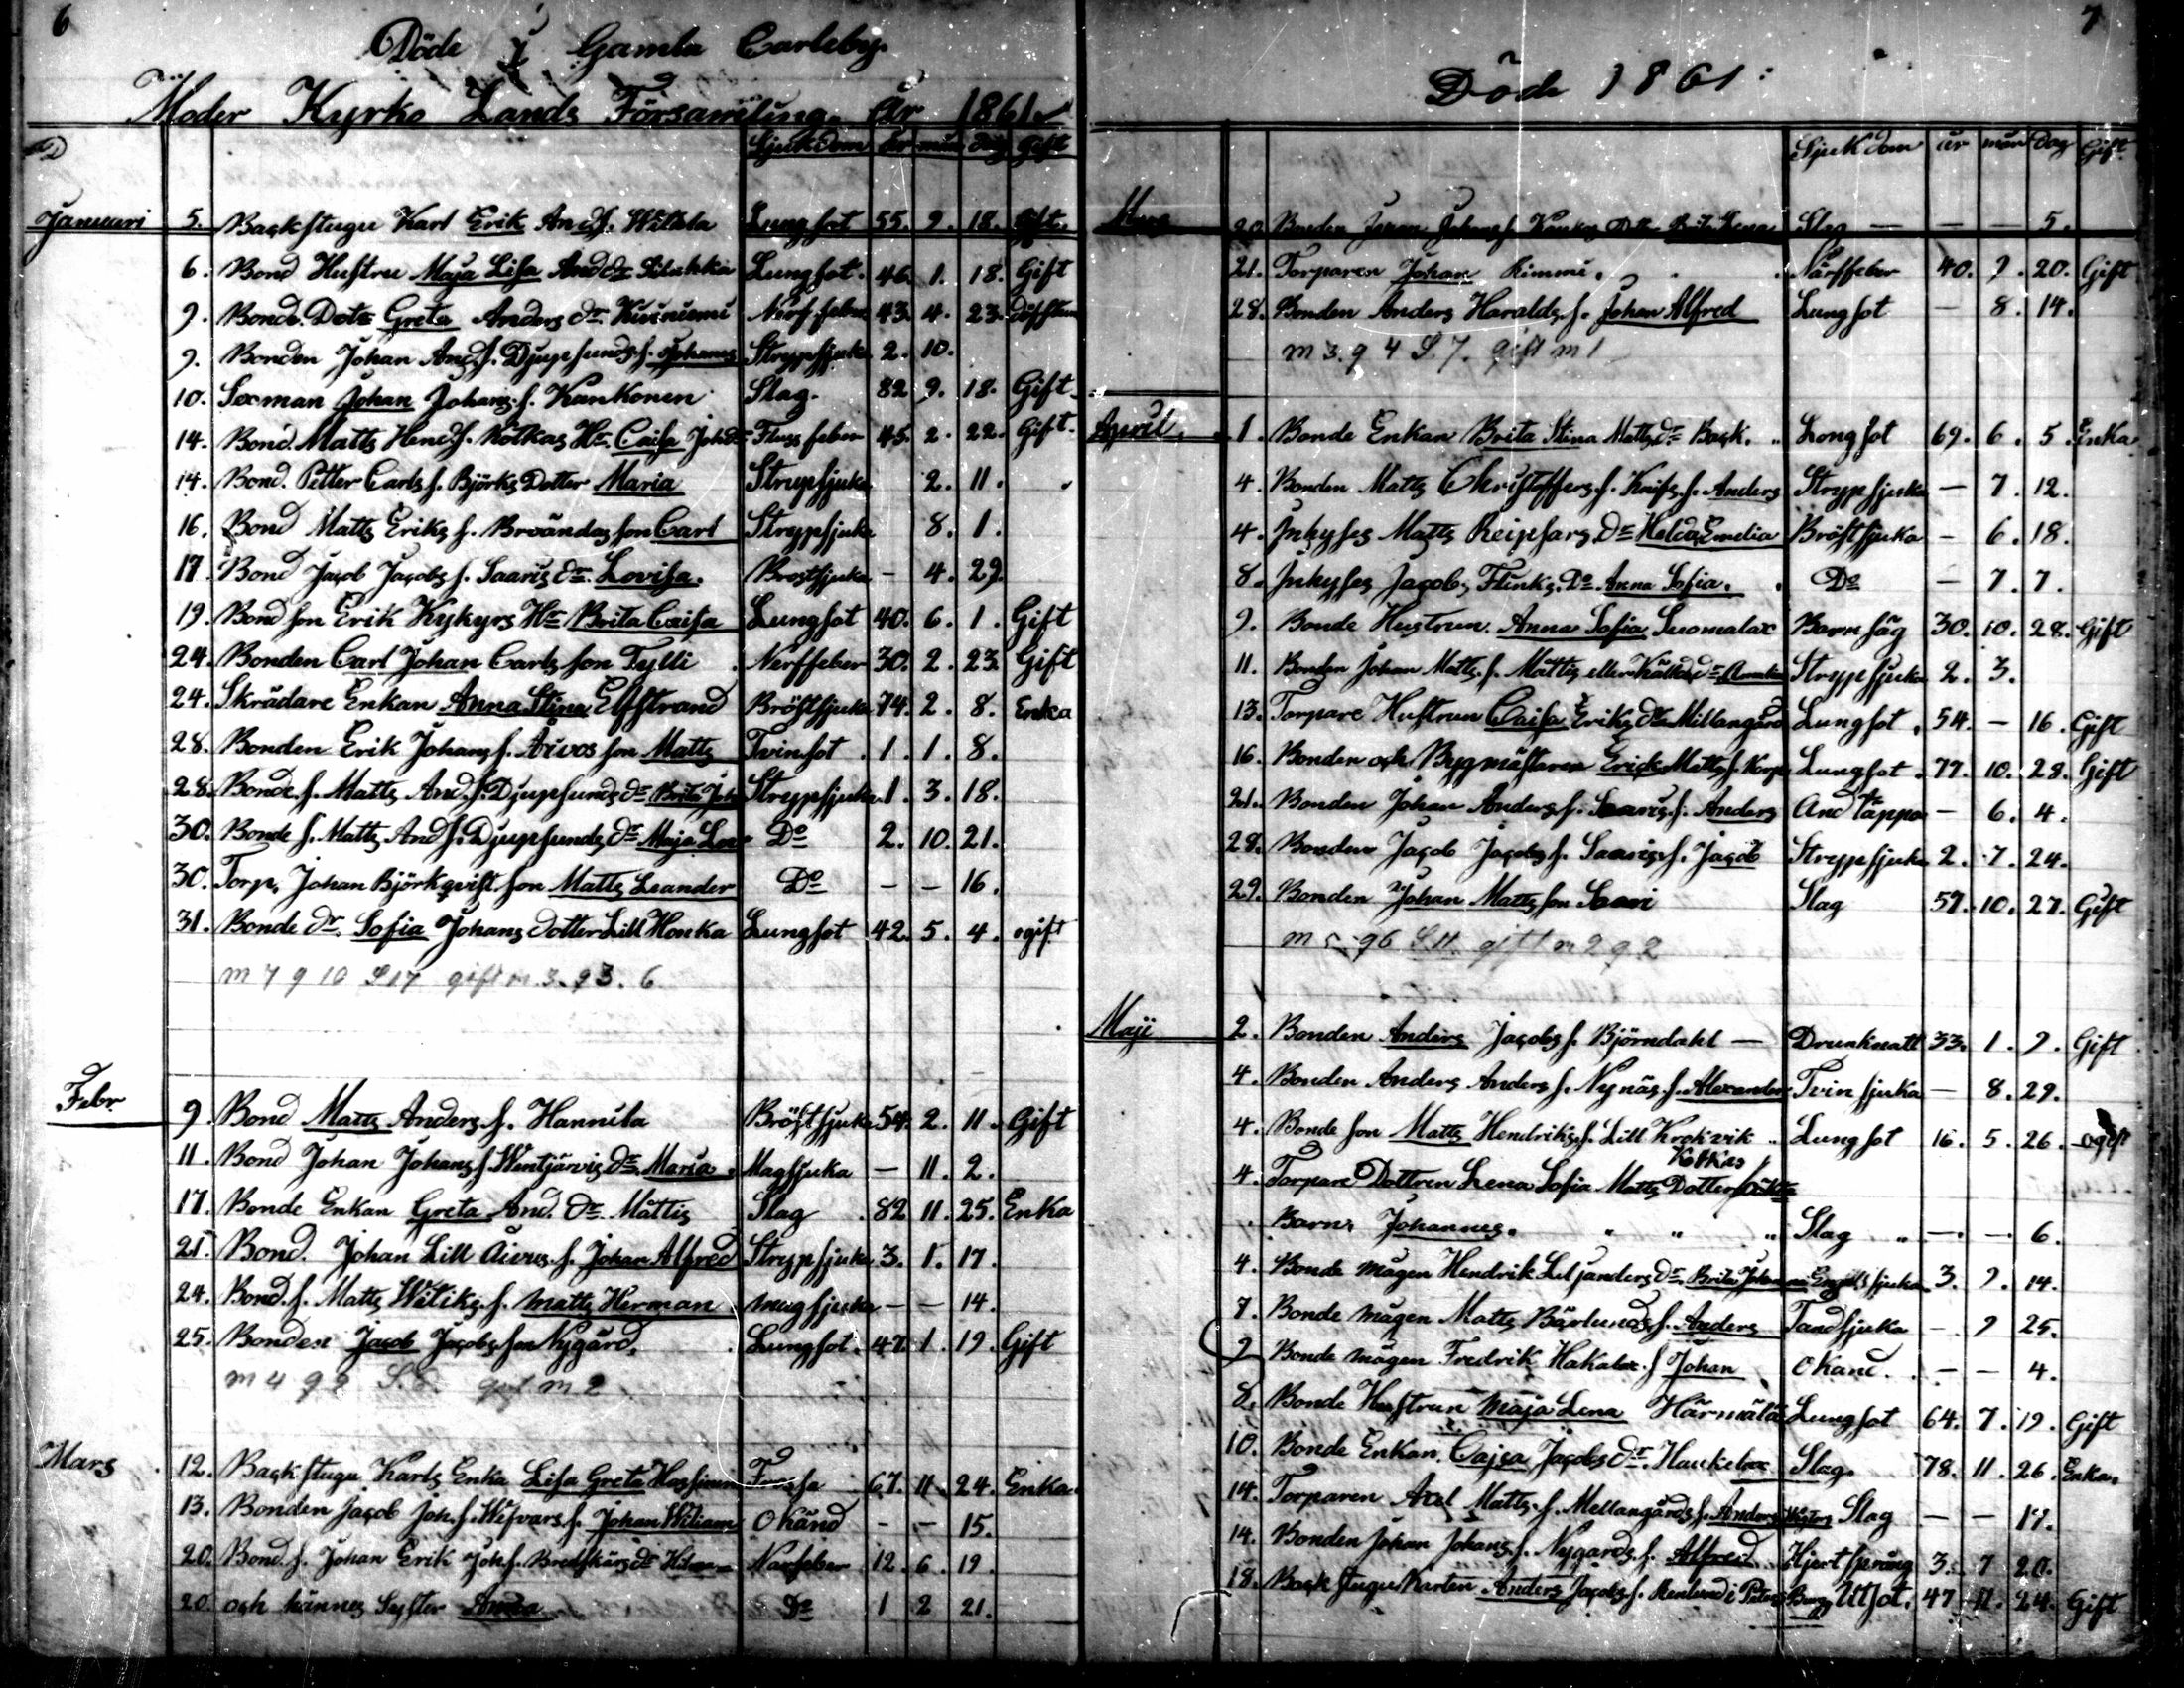 6
Döde i Gamla Carleby
Moder Kyrko Lands Församling. År 1861
D Sjukdom år mån dag Gift
Januari 5. Backstugu Karl Erik Ands. Witala Lungsot 55. 9. 18. Gift.
6. Bond Hustru Maja Lisa And dr Lungsot. 46. 1. 18. Gift
9. Bonde. Dotr Greta Anders dr Nerffeber 43. 4. 23.
9. Bonden Johan And.s. Djupsunds s. Johannes Strypsjuka 2. 10.
10. Sexman Johan Johans.s. Kankonen Slag. 82 9. 18. Gift
14. Bond. Matts Hend.s. Kotkas Hu. Caisa Joh dr Fluss feber 45. 2. 22. Gift.
14. Bond. Petter Carls s. Björks Dotter Maria Strypsjuka 2. 11.
16. Bond Matts Eriks s. Brvändas son Carl Strypsjuka 8. 1.
17. Bond Jacob Jacobs s. Saaris dr. Lovisa. Brostsjuka - 4. 29.
19. Bond son Erik Kykyrs Hu Brita Caisa Lungsot 40. 6. 1. Gift
24. Bonden Carl Johan Carls son Tylli Nerffeber 30. 2. 23. Gift
24. Skrädare Enkan Anna Stina Elfstrand Bröstsjuka 74. 2. 8. Enka
28. Bonden Erik Johans s. Äivos son Matts Tvinsot 1. 1. 8.
28. Bonde s. Matts And.s. Djupsunds dr Brita Joh Strypsjuka 1. 3. 18.
30. Bonde s. Matts And s. Djupsunds dr Maja Lov Do 2. 10. 21.
30. Torp. Johan Björkqvist son Matts Leander Do - - 16.
31. Bonde dr. Sofia Johans dotter Lill Honka Lungsot 42. 5. 4. ogift
m 7 q 10 S 17 gift m. 3. q 3. 6
Febr 9. Bond Matts Anders s. Hannila Bröstsjuka 54. 2. 11. Gift
11. Bond Johan Johans s. Wentjärvis dr. Maria Magsjuka - 11. 2.
17. Bonde Enkan Greta And. dr. Mattis Slag 82 11. 25. Enka
21. Bond. Johan Lill Äivus. s. Johan Alfred Strypsjuka 3. 1. 17.
24. Bond. s. Matts Witiks. s. Matts Herman magsjuka - - 14.
25. Bonden Jacob Jacobs son Nygård. Lungsot. 47. 1. 19. Gift
m 4 q 2 S. 6. gift m 2
Mars 12. Backstugu Karls Enka Lisa Greta 67. 11. 24. Enka
13. Bonden Jacob Joh. s. Wefvars s. Johan Wiliam Okänd - - 15.
20. Bond. s. Johan Erik Joh.s. Bredskärs dr Hilma Narfeber 12. 6. 19.
20 och hännes Syster Anna Do 1 2 21.
7
Döde 1861:
Sjukdom år mån Dag Gift
Mars 20. Bonden Johan Johans s. Dtr Brita Lena Slag — — 5.
21. Torparen Johan Rimmi. Närffeber 40. 9. 20. Gift
28. Bonden Anders Haralds. s. Johan Alfred Lungsot - 8. 14.
m 3. q 4 S. 7. gift m 1
April. 1. Bonde Enkan Brita Stina Matts dr Back. Longsot 69. 6. 5. Enka
4. Bonden Matts Christoffers s. Knifs. s. Anders Strypsjuka - 7. 12.
4. Inhyses Matts Reipsars Dr Helda Emelia Bröstsjuka - 6. 18.
8. Inhyses Jacobs Flinks. Dr. Anna Sofia. Do - 7. 7.
9. Bonde Hustrun. Anna Sofia Suomalax Barnsäg 30. 10. 28. Gift
11. Bonden Johan Matts. s. Mattis eller dr Strypsjuka 2. 3.
13. Torpare Hustrun Caisa Eriks dr Millangård Lungsot 54. - 16. Gift
16. Bonden och Bygmästaren Erick Matts s. Korp Lungsot 77. 10. 28. Gift
21. Bonden Johan Anders s. Saaris. s. Anders And täppa - 6. 4.
28. Bonden Jacob Jacobs s. Saaris. s. Jacob Strypsjuka 2. 7. 24.
29. Bonden Johan Matts son Saari Slag 57. 10. 27. Gift
m 5 q 6 S 11 gift m 2 q 2
Maji 2. Bonden Anders Jacobs s. Björndahl — Drunknatt 33. 1. 9. Gift
4. Bonden Anders Anders s. Nynäs. s. Alexander Tvinsjuka - 8. 29.
4. Bonde son Matts Hendriks. s. Lill Krokvik Lungsot 16. 5. 26. ogift
Kotkas
4. Torpare Dottren Lena Sofia Matts Dotter
Barn. Johannes. Slag - - 6.
4. Bonde mågen Hendrik Liljanders dr. Brita Johanna Engelssjuka 3. 9. 14.
7. Bonde mågen Matts Bärlunds s. Anders Tandsjuka - 9 25.
9 Bonde mågen Fredrik Hakalax. s Johan Okänd. - - 4.
8. Bonde Hustrun Maja Lena Härmälä Lungsot 64. 7. 19. Gift
10. Bonde Enkan. Cajsa Jacobs dr. Haukelax Slag. 78. 11. 26. Enka.
14. Torparen Axel Matts. s. Mellangårds s. Anders Slag - - 17.
14. Bonden Johan Johans s. Nygårds s. Alfred Hjertsprång 3. 7 20.
18. Backstugu Karlen Anders Jacobs s. i Peters Burg Utsot. 47 11. 24. Gift